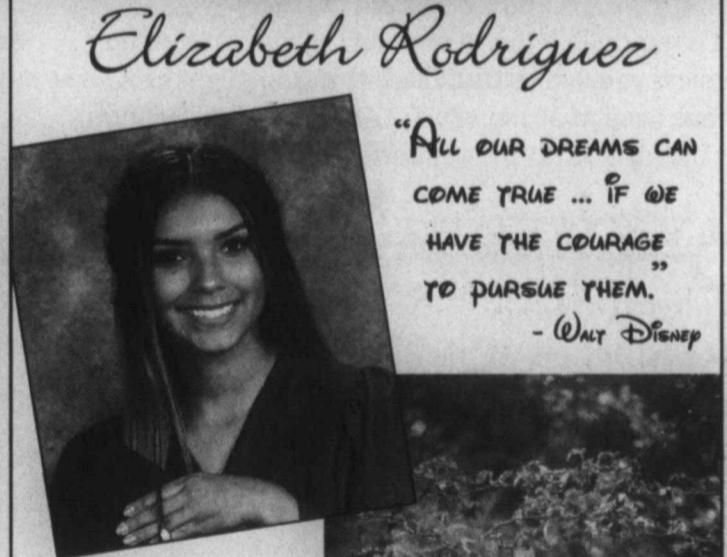 Elizabeth Rodriguez
“All our dreams can
come true ... if we
have the courage
to pursue them.”
- Walt Disney